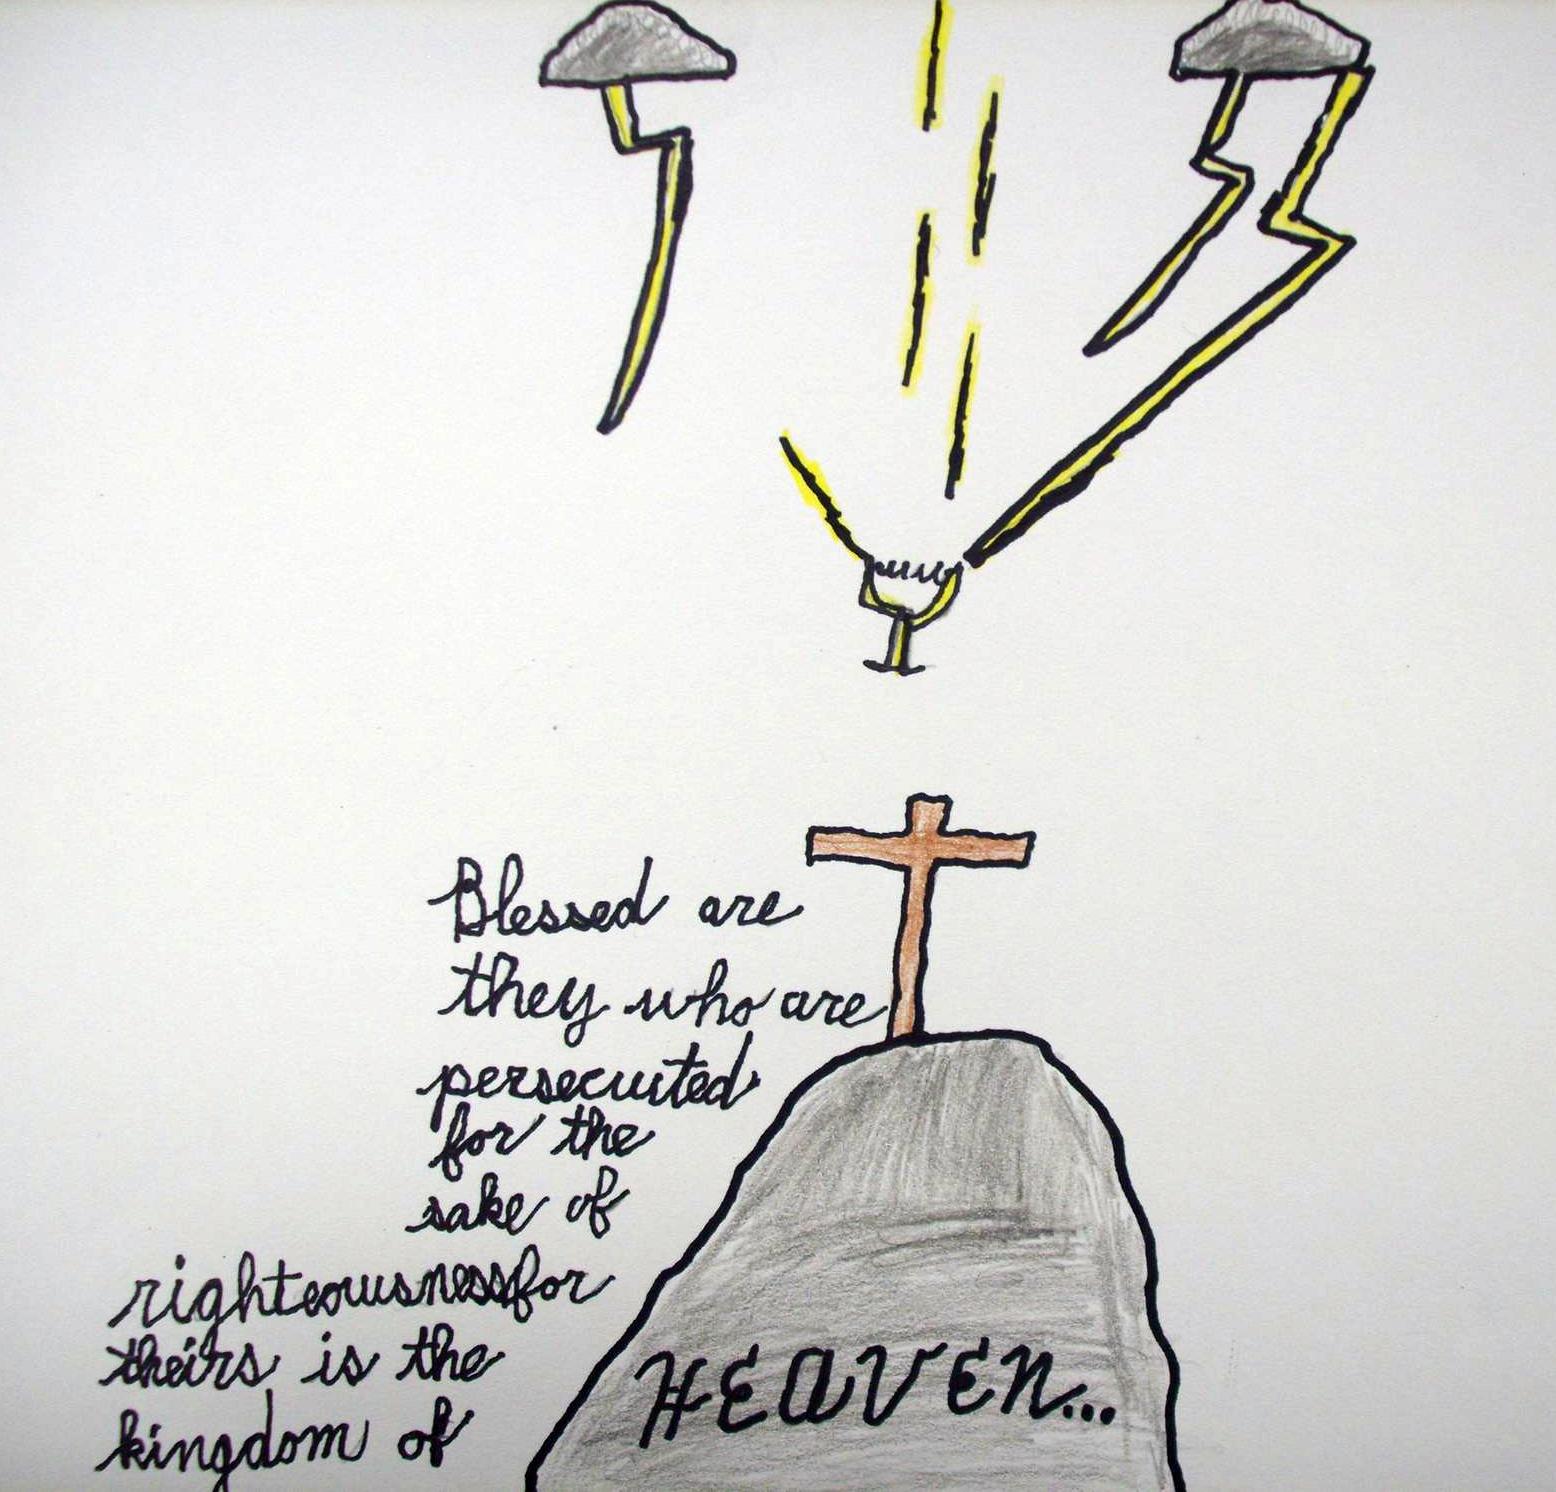 Blessed are
they who are
persecuted
for the
sake of
righteousness for
theirs is the
kingdom of
HEAVEN...